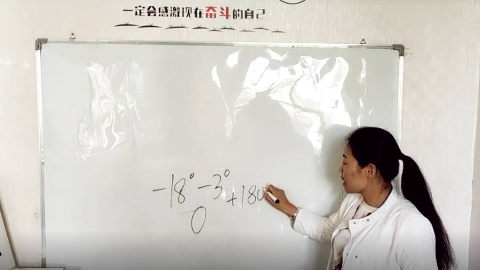 一定会感激现在奋斗的自己
-18° -3° +180
0